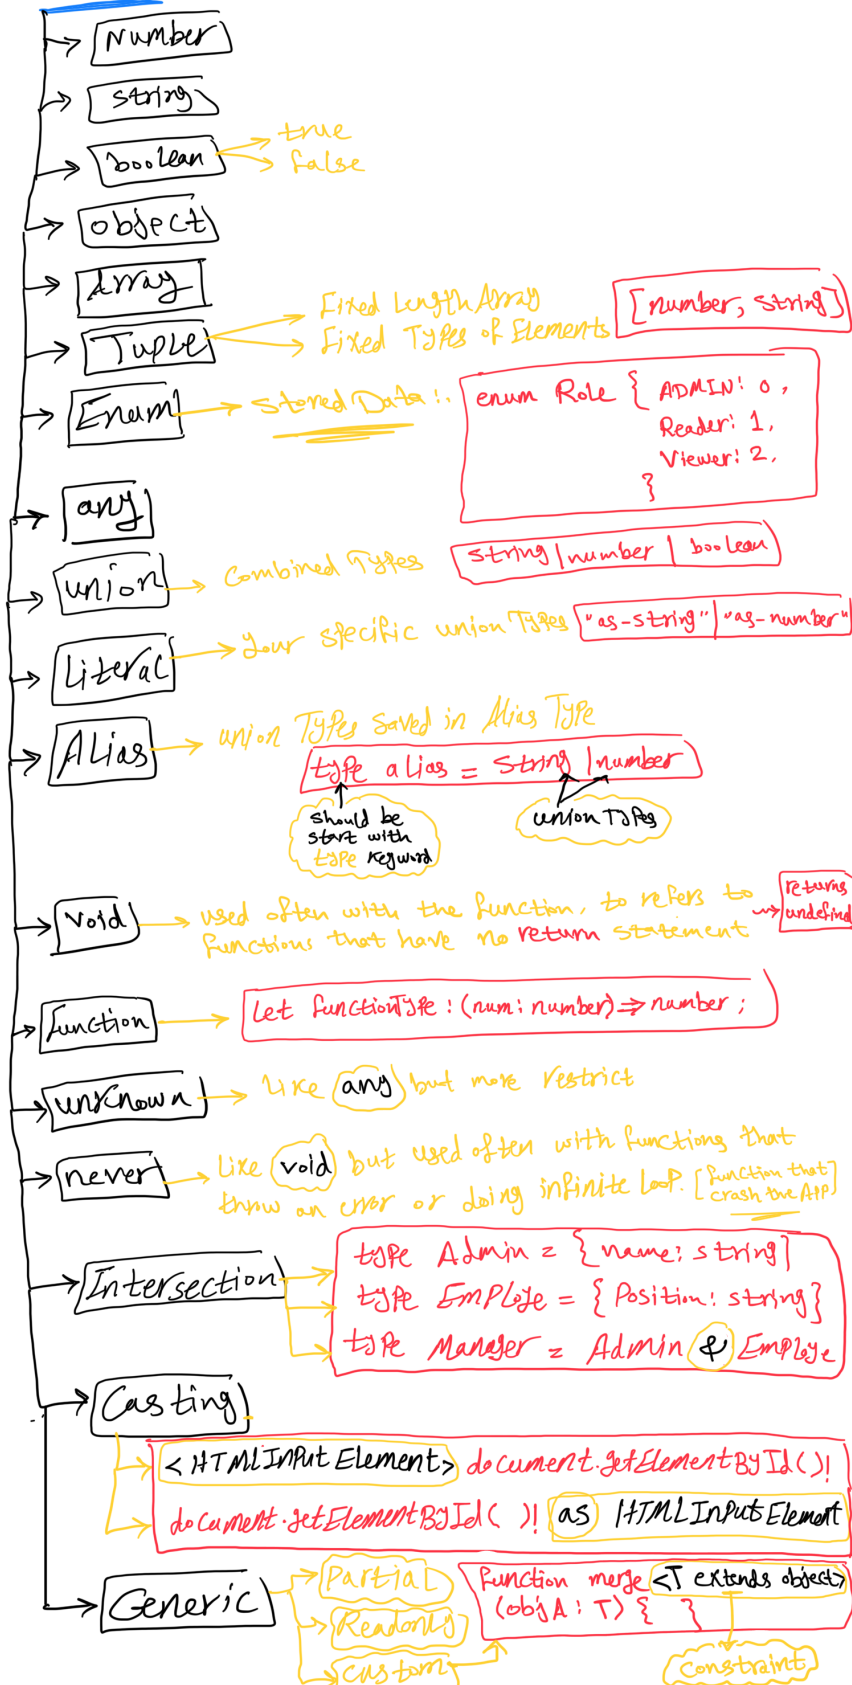 Number
string
boolean
true
false
object
Array
Tuple
Fixed Length Array
Fixed Types of Elements
[number, string]
Enum
Stored Data:.
enum Role { ADMIN: 0,
Reader: 1,
Viewer: 2,
}
any
union
Combined Types
string | number | boolean
Literal
Your specific union Types
"as-string" | "as-number"
Alias
union Types saved in Alias Type
type alias = string | number
should be
start with
type keyword
union Types
void
used often with the function, to refers to
functions that have no return statement
returns
undefind
function
let functionType : (num: number) => number ;
unknown
Like any but more restrict
never
Like void but used often with functions that
throw an error or doing infinite loop. [function that
crash the APP]
Intersection
type Admin = { name: string }
type Employe = { Position: string }
type Manager = Admin & Employe
Casting
<HTMLInputElement> document.getElementById()!
document.getElementById( )! as HTMLInputElement
Generic
Partial
Readonly
custom
function merge <T extends object>
(objA : T) { }
constraint